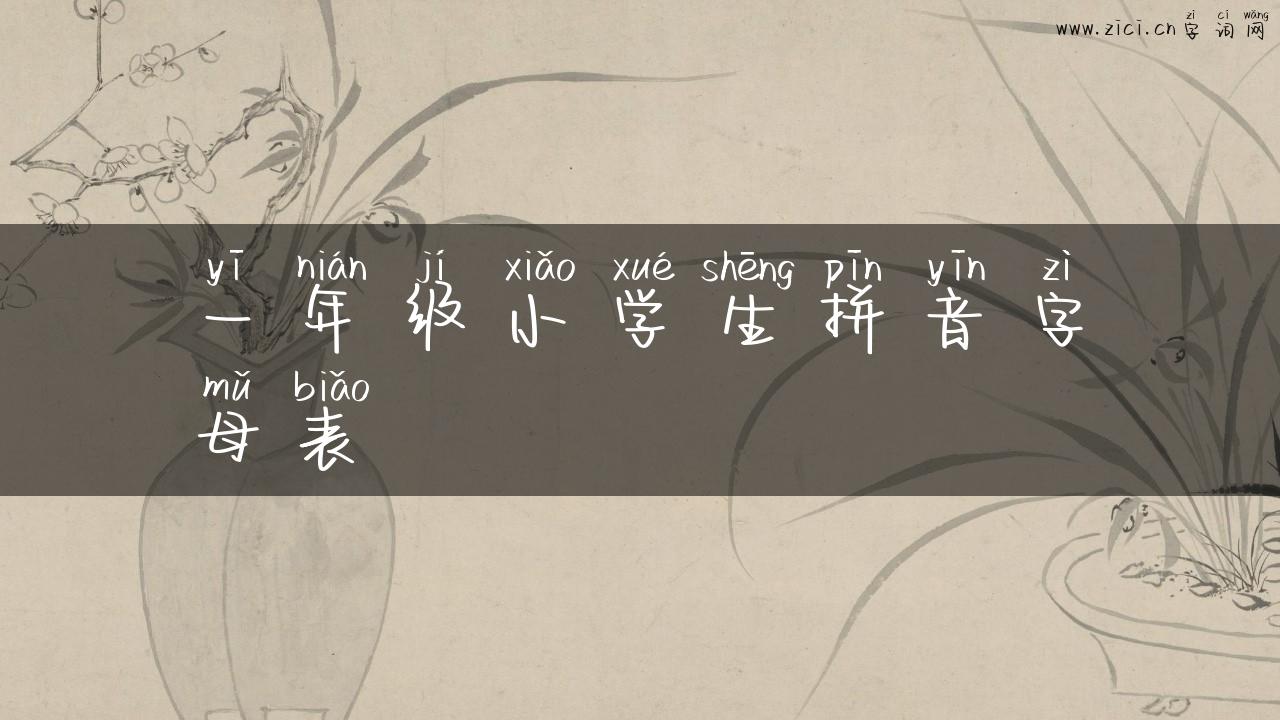 zì cí wǎng
www.zici.cn 字 词 网
yī nián jí xiǎo xué shēng pīn yīn zì
一 年 级 小 学 生 拼 音 字
mǔ biǎo
母 表